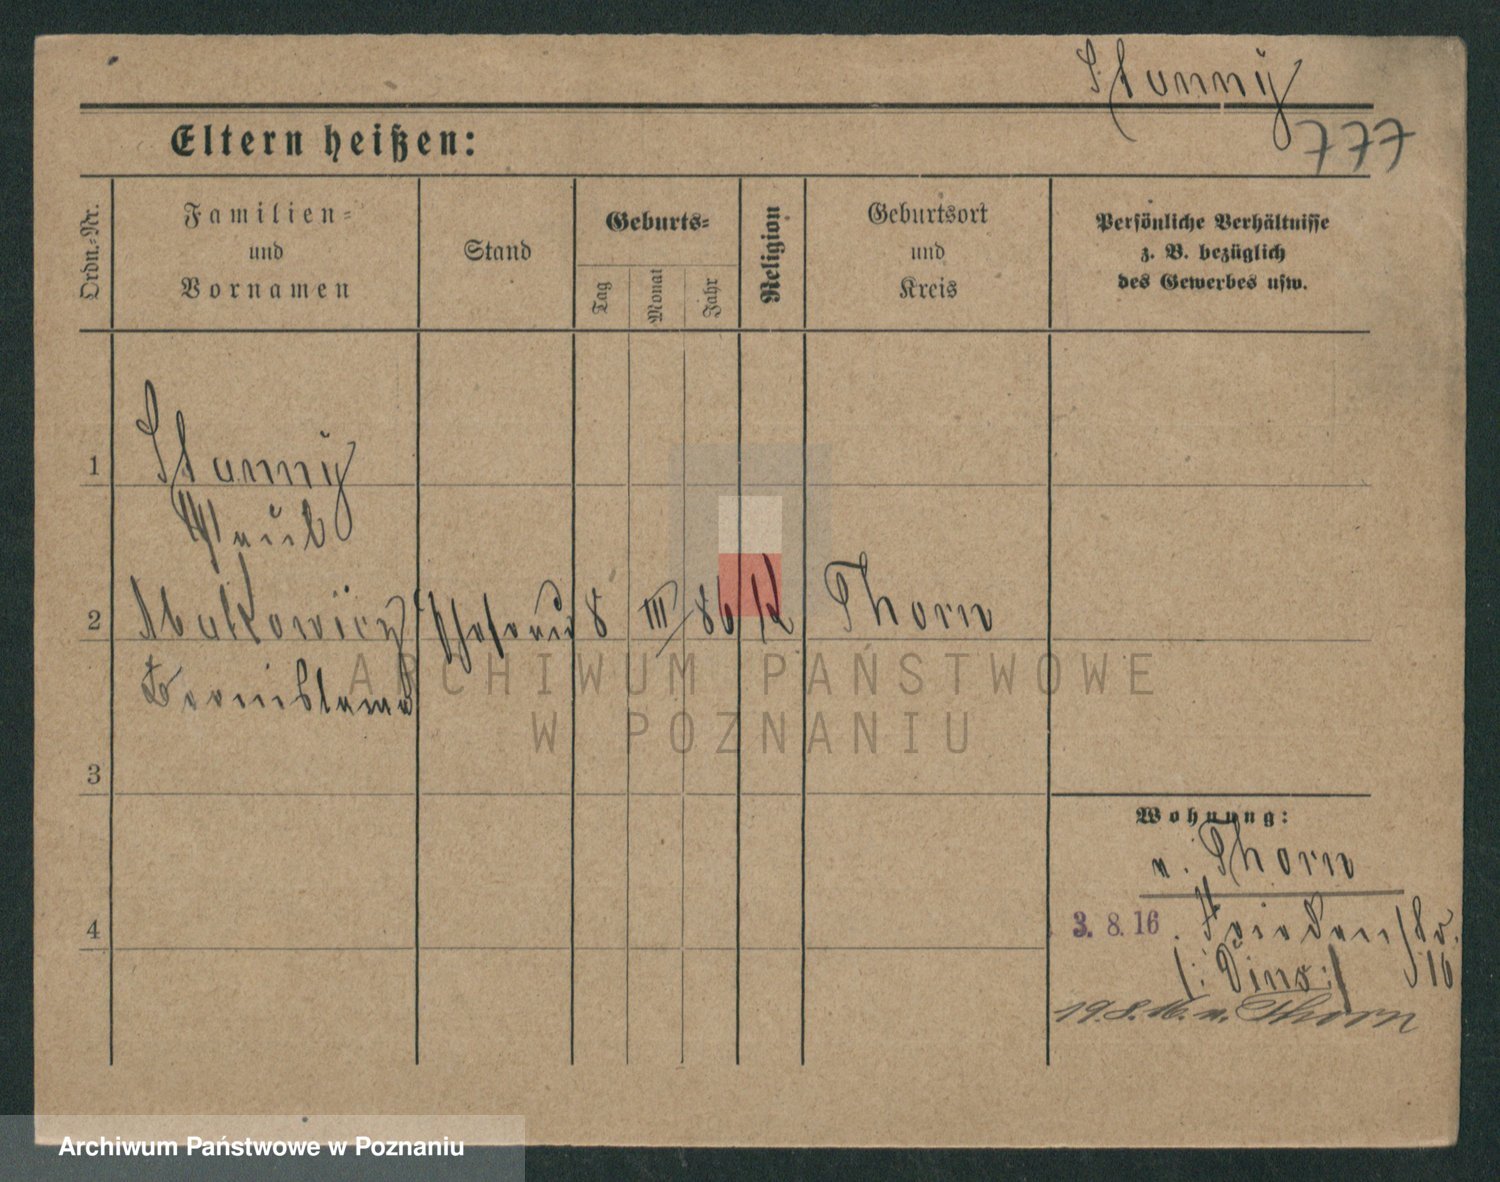 Stanny
777
Eltern heißen:
Ordn.=Nr.
Familien=
und
Vornamen
Stand
Geburts=
Tag
Monat
Jahr
Religion
Geburtsort
und
Kreis
Persönliche Verhältnisse
z. B. bezüglich
des Gewerbes usw.
1
Stanny
2
Makowicz
8 III 86 K Thorn
Bronislawa
3
Wohnung:
n. Thorn
4
3. 8. 16
16
19.8.16. n. Thorn
ARCHIWUM PAŃSTWOWE
W POZNANIU
Archiwum Państwowe w Poznaniu